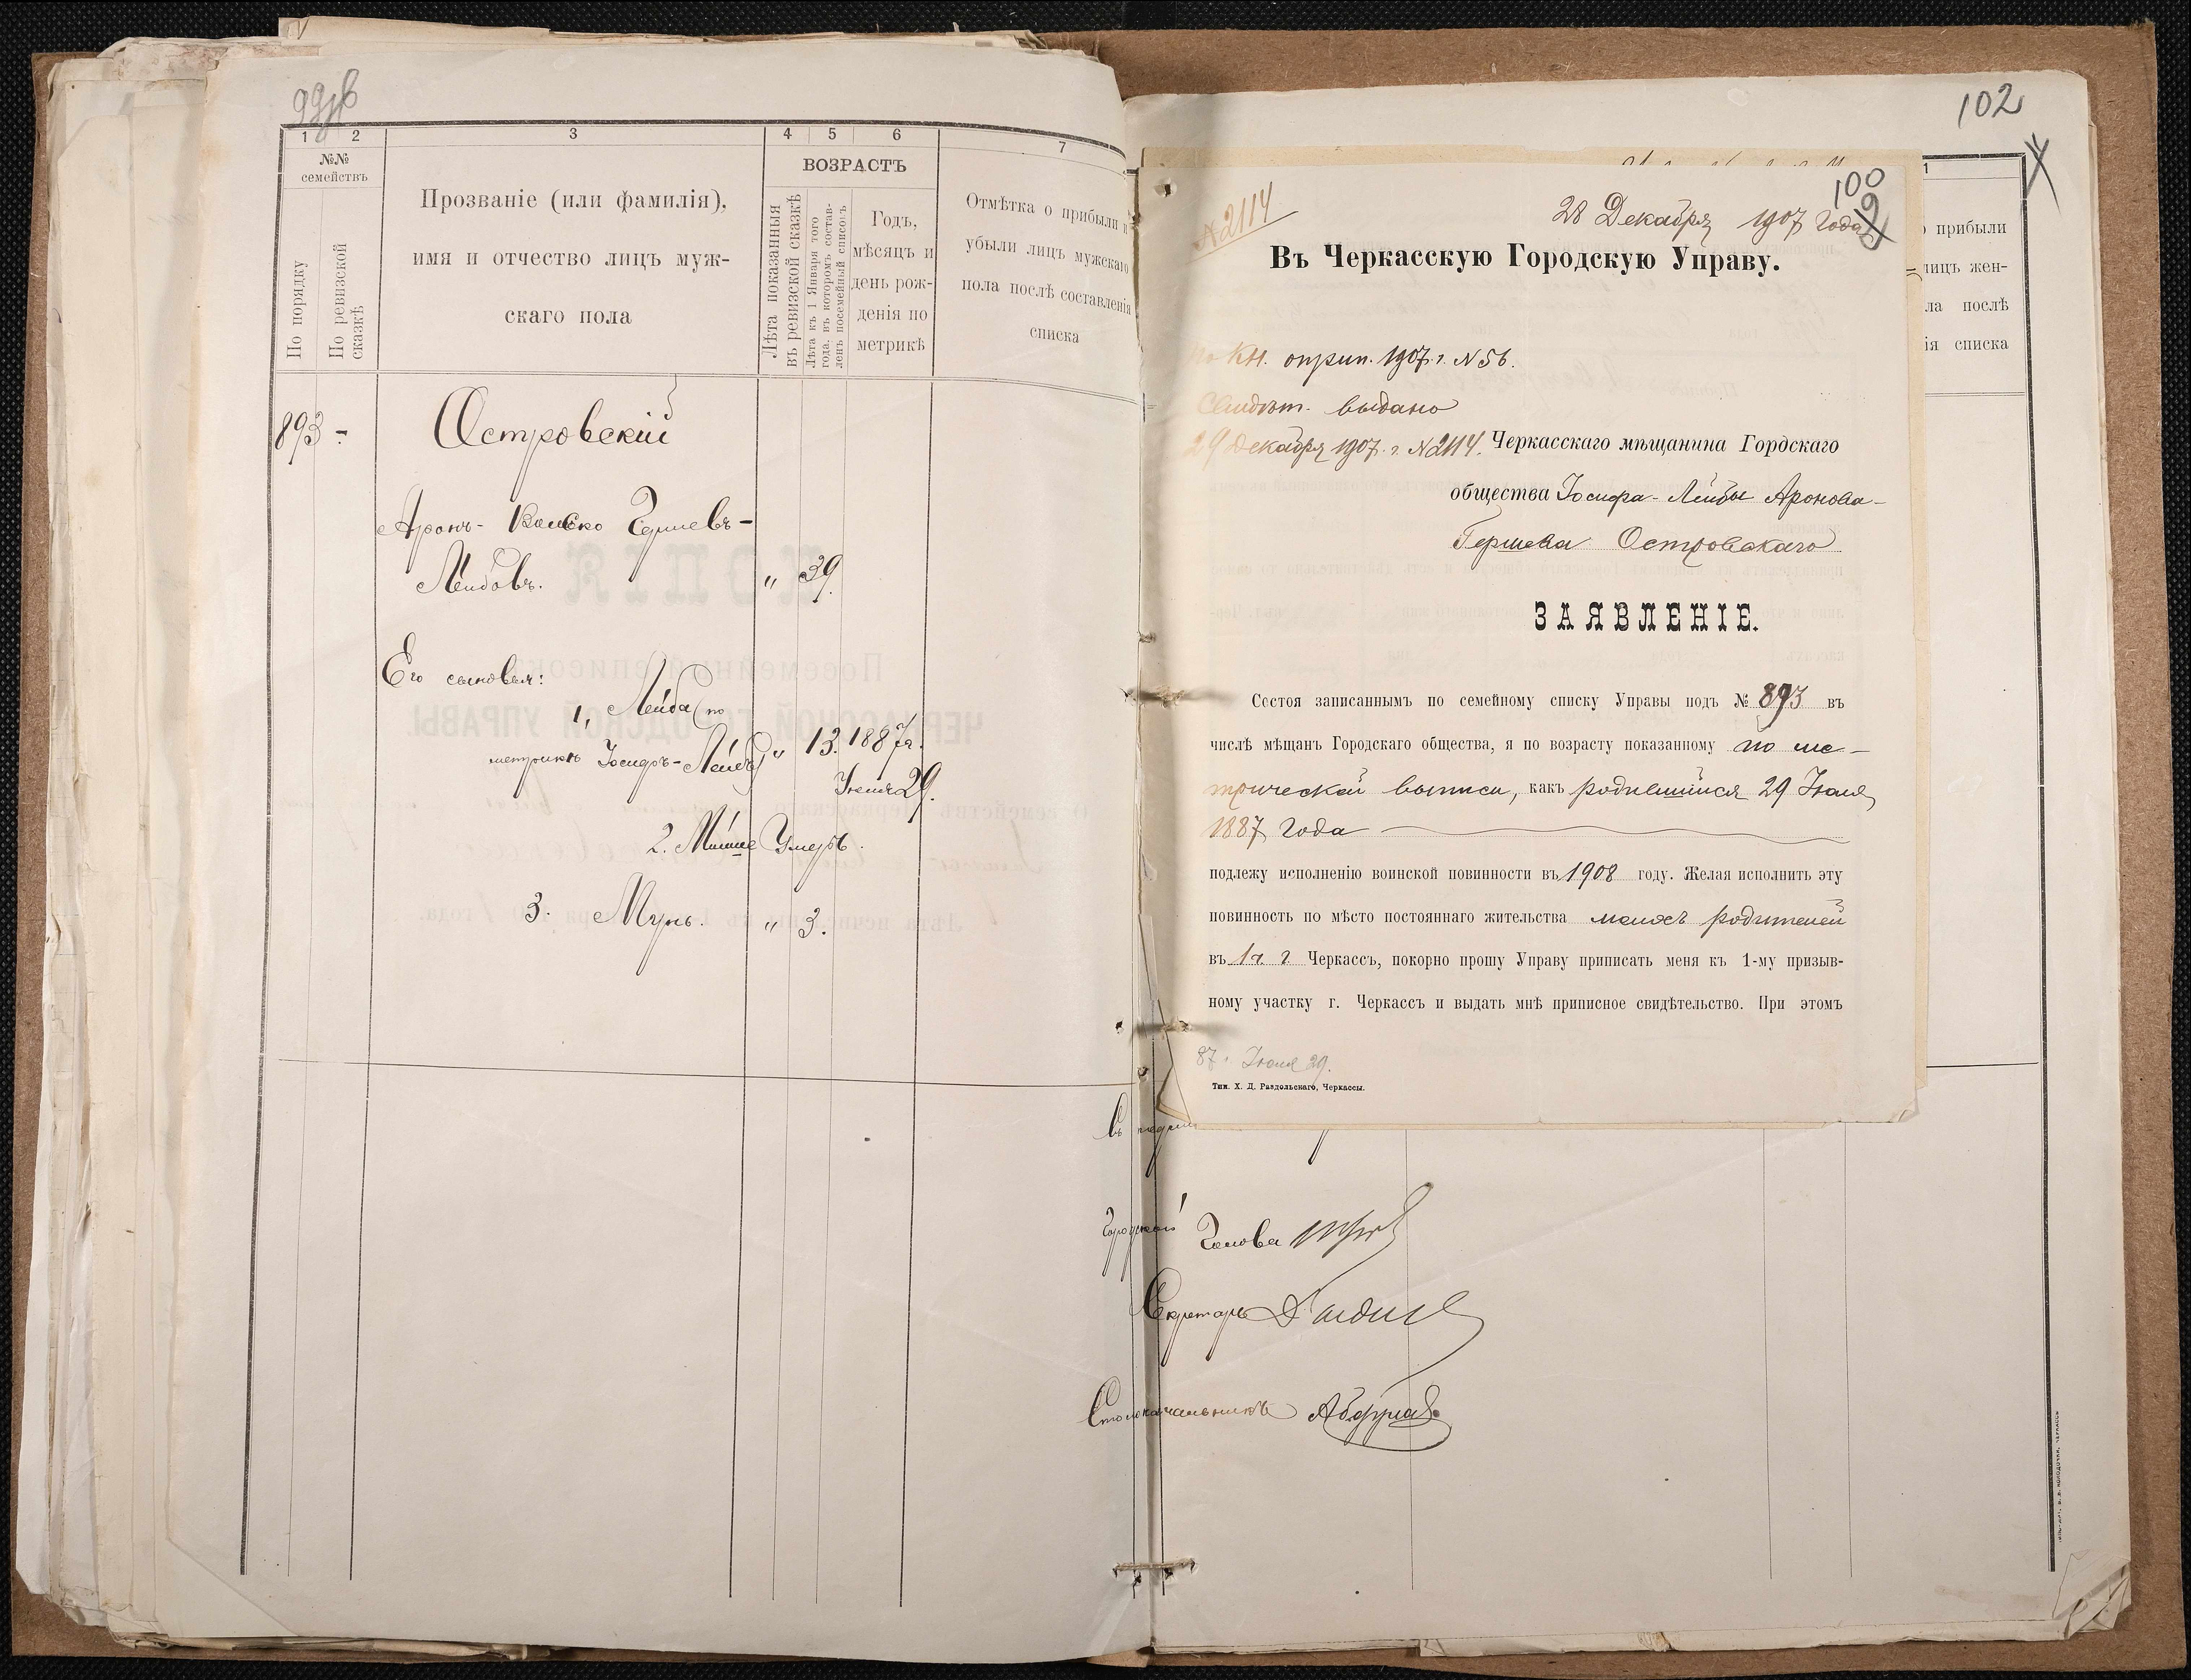 99об
1 2 3 4 5 6 7
№№ семействъ
По порядку
По ревизской сказкѣ
Прозваніе (или фамилія),
имя и отчество лицъ муж-
скаго пола
ВОЗРАСТЪ
Лѣта показанныя въ ревизской сказкѣ
Лѣта къ 1 Января того года, въ которомъ состав-ленъ посемейный списокъ
Годъ,
мѣсяцъ и
день рож-
денія по
метрикѣ
Отмѣтка о прибыли и
убыли лицъ мужскаго
пола послѣ составленія
списка
893 -
Островскій
Аронъ- Гершевъ-
Лейбовъ. " 39.
Его сыновья:
1, Лейба (по
метрикѣ Іосифъ-Лейба) " 13. 1887г.
Іюля 29.
2. Умеръ.
3. " 3.
102
1
прибыли
лицъ жен-
ла послѣ
ія списка
№2114
100
28 Декабря 1907 года
Въ Черкасскую Городскую Управу.
По кн. прип. 1907 г. №56.
Свидѣт. выдано
29 Декабря 1907 г. №2114.
Черкасскаго мѣщанина Гордскаго
общества Іосифа-Лейбы Аронова-
Гершева Островскаго
ЗАЯВЛЕНІЕ.
Состоя записаннымъ по семейному списку Управы подъ № 893 въ
числѣ мѣщанъ Городскаго общества, я по возрасту показанному по ме-
трической выписи, какъ родившийся 29 Іюля
1887 года
подлежу исполненію воинской повинности въ 1908 году. Желая исполнить эту
повинность по мѣсто постояннаго жительства моихъ родителей
въ г. Черкассъ, покорно прошу Управу приписать меня къ 1-му призыв-
ному участку г. Черкассъ и выдать мнѣ приписное свидѣтельство. При этомъ
87. Іюля 29.
Тип. Х. Д. Раздольскаго, Черкассы.
Городской Голова
Секретарь
Столоначальникъ